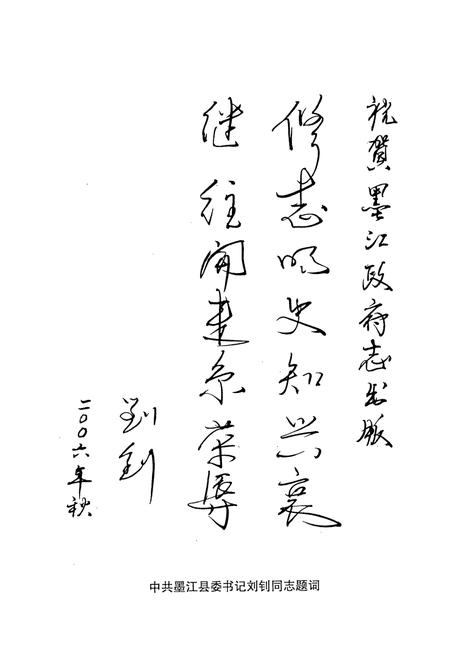 祝贺墨江政府志出版
修志明史知兴衰
继往开来系荣辱
刘钊
二〇〇六年秋
中共墨江县委书记刘钊同志题词